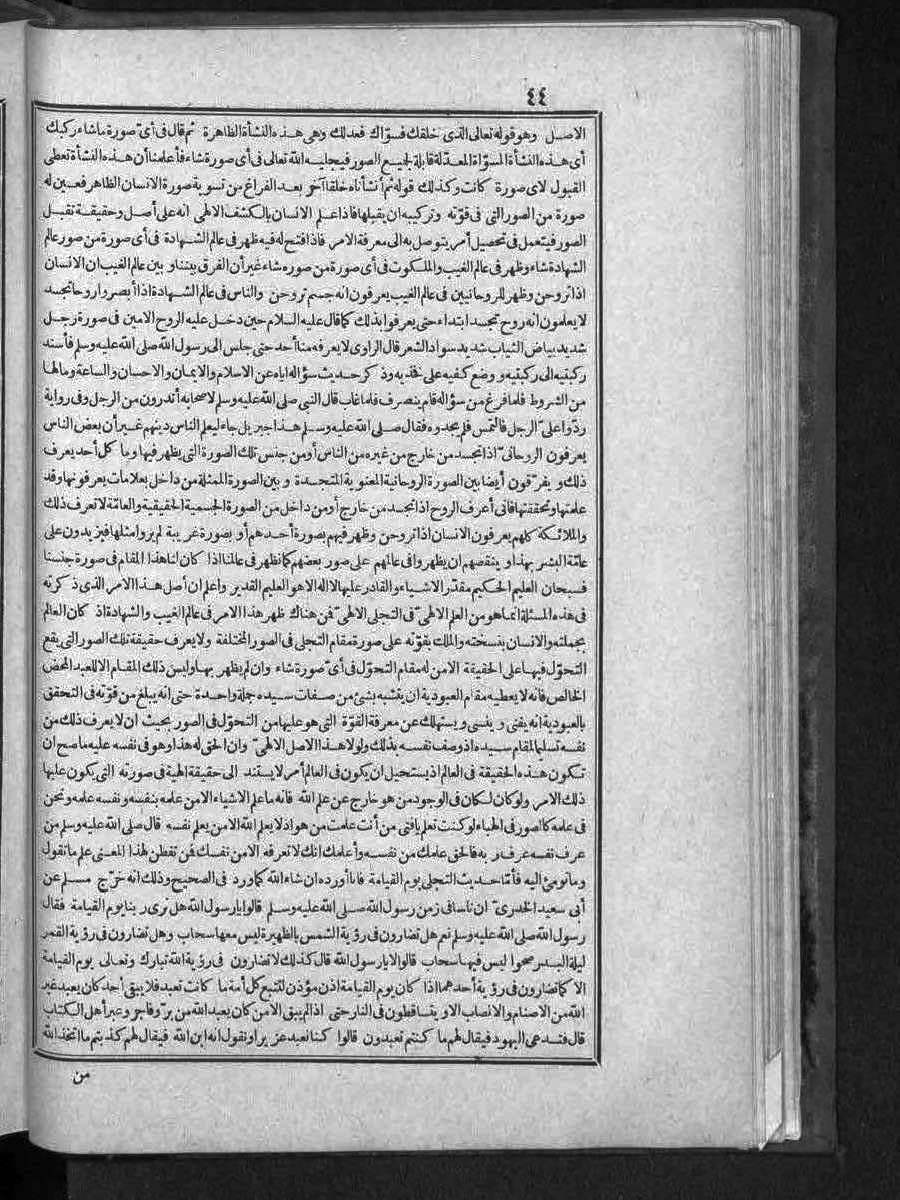 ٤٤
الاصل وهو قوله تعالى الذى خلقك فسوّاك فعدلك وهى هذه النشأة الظاهرة ثم قال فى أىّ صورة ماشاء ركبك
أى هذه النشأة المسوّاة المعدّلة قابلة لجميع الصور فيجليه الله تعالى فى أى صورة شاء فأعلمنا أن هذه النشأة تعطى
القبول لاى صورة كانت وكذلك قوله ثم أنشأناه خلقا آخر بعد الفراغ من تسوية صورة الانسان الظاهر فعين له
صورة من الصور التى فى قوّته وتركيبه ان يقبلها فاذا علم الانسان بالكشف الالهى انه على أصل وحقيقة تقبل
الصور فيتعمل فى تحصيل أمر يتوصل به الى معرفة الامر فاذا فتح له فيه ظهر فى عالم الشهادة فى أى صورة من صور عالم
الشهادة شاء وظهر فى عالم الغيب والملكوت فى أى صورة من صوره شاء غير أن الفرق بيننا و بين عالم الغيب ان الانسان
اذا تروحن وظهر للروحانيين فى عالم الغيب يعرفون انه جسم تروحن والناس فى عالم الشهادة اذا أبصروا روحا تجسد
لا يعلمون انه روح تجسد ابتداء حتى يعرفوا بذلك كما قال عليه السلام حين دخل عليه الروح الامين فى صورة رجل
شديد بياض الثياب شديد سواد الشعر قال الراوى لا يعرفه منا أحد حتى جلس الى رسول الله صلى الله عليه وسلم فأسند
ركبتيه الى ركبتيه و وضع كفيه على فخذيه وذكر حديث سؤاله اياه عن الاسلام والايمان والاحسان والساعة ومالها
من الشروط فلما فرغ من سؤاله قام ينصرف فلما غاب قال النبي صلى الله عليه وسلم لاصحابه أتدرون من الرجل وفى رواية
ردّوا علىّ الرجل فالتمس فلم يجدوه فقال صلى الله عليه وسلم هذا جبريل جاء ليعلم الناس دينهم غير أن بعض الناس
يعرفون الروحانىّ اذا تجسد من خارج من غيره من الناس أو من جنس تلك الصورة التى يظهر فيها وما كل أحد يعرف
ذلك و يفرّقون أيضا بين الصورة الروحانية المعنوية المتجسدة و بين الصورة الممثلة من داخل بعلامات يعرفونها وقد
علمتها وتحققتها فانى أعرف الروح اذا تجسد من خارج أو من داخل من الصورة الجسمية الحقيقية والعامّة لا تعرف ذلك
والملائكة كلهم يعرفون الانسان اذا تروحن وظهر فيهم بصورة أحدهم أو بصورة غريبة لم يروا مثلها فيزيدون على
عامّة البشر بهذا و ينقصهم ان يظهروا فى عالمهم على صور بعضهم كما نظهر فى عالمنا اذا كان لنا هذا المقام فى صورة جنسنا
فسبحان العليم الحكيم مقدّر الاشياء والقادر عليها لا اله الا هو العليم القدير واعلم ان أصل هذا الامر الذى ذكرته
فى هذه المسئلة انما هو من العلم الالهىّ فى التجلى الالهىّ فمن هناك ظهر هذا الامر فى عالم الغيب والشهادة اذ كان العالم
بجملته والانسان بنسخته والملك بقوّته على صورة مقام التجلى فى الصور المختلفة ولا يعرف حقيقة تلك الصور التى يقع
التحوّل فيها على الحقيقة الا من له مقام التحوّل فى أىّ صورة شاء وان لم يظهر بها وليس ذلك المقام الا للعبد المحض
الخالص فانه لا يعطيه مقام العبودية ان يتشبه بشئ من صفات سيده جملة واحدة حتى انه يبلغ من قوّته فى التحقق
بالعبودية انه يفنى و ينسى و يستهلك عن معرفة القوّة التى هو عليها من التحوّل فى الصور بحيث ان لا يعرف ذلك من
نفسه تسليما لمقام سيده اذ وصف نفسه بذلك ولولا هذا الاصل الالهىّ وان الحق له هذا وهو فى نفسه عليه ما صح ان
تكون هذه الحقيقة فى العالم اذ يستحيل ان يكون فى العالم أمر لا يستند الى حقيقة الهية فى صورته التى يكون عليها
ذلك الامر ولو كان لكان فى الوجود من هو خارج عن علم الله فانه ما علم الاشياء الا من علمه بنفسه ونفسه علمه ونحن
فى علمه كالصور فى الهباء لو كنت تعلم يافتى من أنت علمت من هو اذ لا يعلم الله الا من يعلم نفسه قال صلى الله عليه وسلم من
عرف نفسه عرف ربه فالحق علمك من نفسه وأعلمك انك لا تعرفه الا من نفسك فمن تفطن لهذا المعنى علم ما نقول
وما نومئ اليه فأمّا حديث التجلى يوم القيامة فانا أورده ان شاء الله كما ورد فى الصحيح وذلك انه خرّج مسلم عن
أبى سعيد الخدرىّ ان ناسا فى زمن رسول الله صلى الله عليه وسلم قالوا يارسول الله هل نرى ربنا يوم القيامة فقال
رسول الله صلى الله عليه وسلم نعم هل تضارون فى رؤية الشمس بالظهيرة ليس معها سحاب وهل تضارون فى رؤية القمر
ليلة البدر صحوا ليس فيها سحاب قالوا لا يارسول الله قال كذلك لا تضارون فى رؤية الله تبارك وتعالى يوم القيامة
الا كما تضارون فى رؤية أحدهما اذا كان يوم القيامة اذن مؤذن لتتبع كل أمة ما كانت تعبد فلا يبقى أحد كان يعبد غير
الله من الاصنام والانصاب الا و يتساقطون فى النار حتى اذا لم يبق الا من كان يعبد الله من برّ وفاجر وغبر أهل الكتاب
قال فتدعى اليهود فيقال لهم ما كنتم تعبدون قالوا كنا نعبد عزيرا ونقول انه ابن الله فيقال لهم كذبتم ما اتخذ الله
من